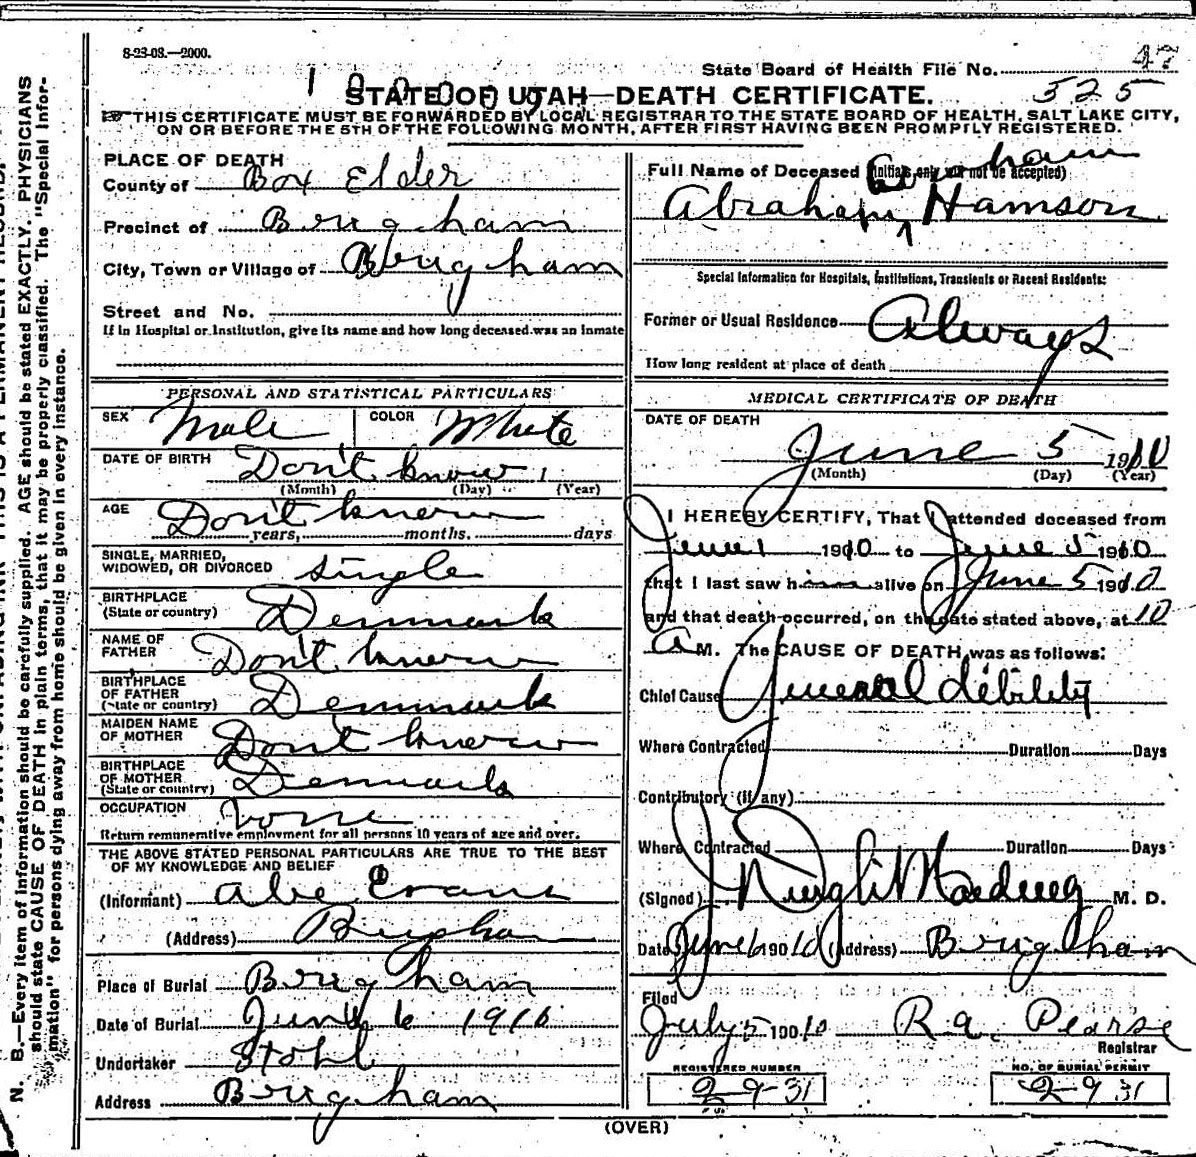 8-23-08.—2000.
State Board of Health File No. 47
325
STATE OF UTAH—DEATH CERTIFICATE.
THIS CERTIFICATE MUST BE FORWARDED BY LOCAL REGISTRAR TO THE STATE BOARD OF HEALTH, SALT LAKE CITY,
ON OR BEFORE THE 5TH OF THE FOLLOWING MONTH, AFTER FIRST HAVING BEEN PROMPTLY REGISTERED.
PLACE OF DEATH
County of Box Elder
Precinct of Brigham
City, Town or Village of Brigham
Street and No.
If in Hospital or Institution, give its name and how long deceased was an inmate
PERSONAL AND STATISTICAL PARTICULARS
SEX Male COLOR White
DATE OF BIRTH Don't know 1
(Month) (Day) (Year)
AGE Don't know
years, months, days
SINGLE, MARRIED,
WIDOWED, OR DIVORCED single
BIRTHPLACE
(State or country) Denmark
NAME OF
FATHER Don't know
BIRTHPLACE
OF FATHER
(State or country) Denmark
MAIDEN NAME
OF MOTHER Don't know
BIRTHPLACE
OF MOTHER
(State or country) Denmark
OCCUPATION none
Return remunerative employment for all persons 10 years of age and over.
THE ABOVE STATED PERSONAL PARTICULARS ARE TRUE TO THE BEST
OF MY KNOWLEDGE AND BELIEF
(Informant) Abe Evans
(Address) Brigham
Place of Burial Brigham
Date of Burial June 6 1910
Undertaker Stohl
Address Brigham
Full Name of Deceased (Initials only will not be accepted)
Abraham Hamson
Special Information for Hospitals, Institutions, Transients or Recent Residents:
Former or Usual Residence Always
How long resident at place of death
MEDICAL CERTIFICATE OF DEATH
DATE OF DEATH
June 5 1910
(Month) (Day) (Year)
I HEREBY CERTIFY, That I attended deceased from
June 1 1910 to June 5 1910
that I last saw him alive on June 5 1910
and that death occurred, on the date stated above, at 10
A M. The CAUSE OF DEATH was as follows:
Chief Cause General debility
Where Contracted Duration Days
Contributory (if any)
Where Contracted Duration Days
(Signed) M. D.
Date June 6 1910 (Address) Brigham
Filed
July 5 1910 R a. Pearse
Registrar
REGISTERED NUMBER NO. OF BURIAL PERMIT
2-9-31 2-9 31
(OVER)
N. B.—Every item of information should be carefully supplied. AGE should be stated EXACTLY. PHYSICIANS
should state CAUSE OF DEATH in plain terms, that it may be properly classified. The "Special Infor-
mation" for persons dying away from home should be given in every instance.